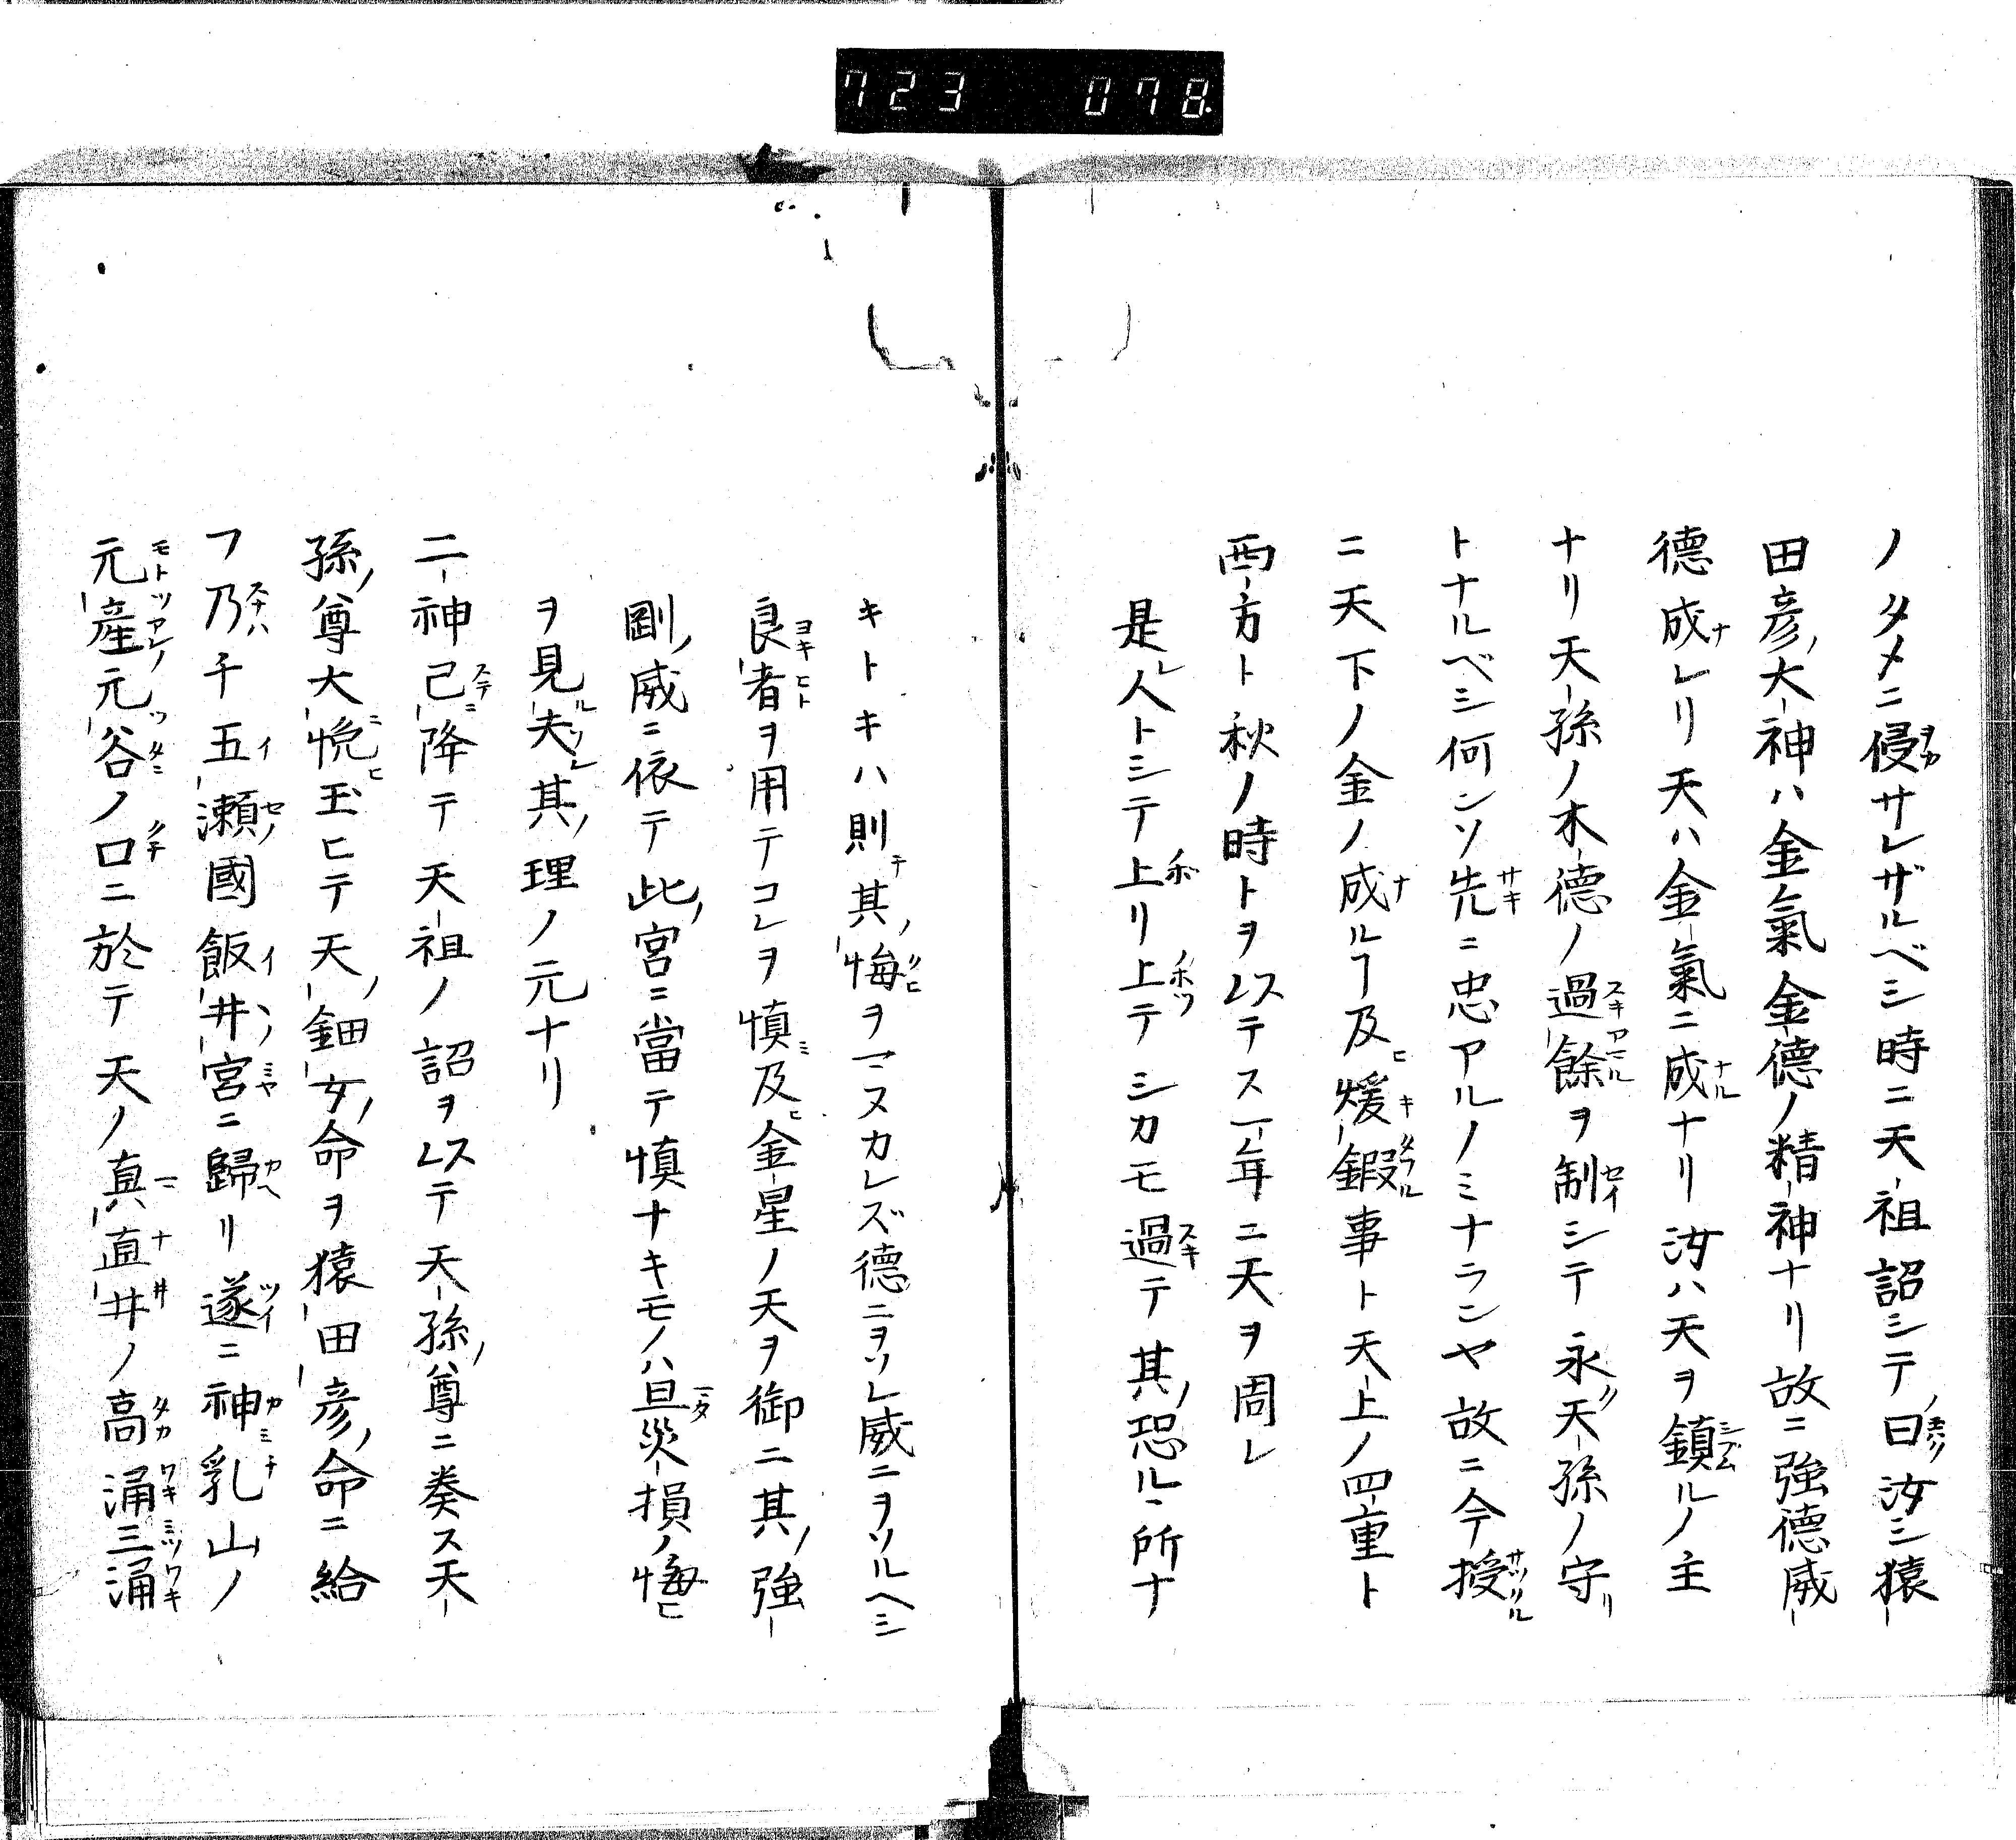 723 078
ノタメニ侵サレザルベシ時ニ天祖詔シテ曰汝シ猿
田彦大神ハ金氣金德ノ精神ナリ故ニ強德威
德成レリ天ハ金氣ニ成ナリ汝ハ天ヲ鎮ルノ主
ナリ天孫ノ木德ノ過餘ヲ制シテ永天孫ノ守
トナルベシ何ンソ先ニ忠アルノミナランヤ故ニ今授
ニ天下ノ金ノ成ルヿ及煖鍛事ト天上ノ四重ト
西方ト秋ノ時トヲ以テス一年ニ天ヲ周レ
是人トシテ上リ上テシカモ過テ其恐ル所ナ
キトキハ則其悔ヲマヌカレズ德ニヲソレ威ニヲソルヘシ
良者ヲ用テコレヲ慎及金星ノ天ヲ御ニ其強
剛威ニ依テ此宮ニ當テ慎ナキモノハ旦災損ノ悔ヒ
ヲ見夫其理ノ元ナリ
二神已降テ天祖ノ詔ヲ以テ天孫尊ニ奏ス天
孫尊大悅玉ヒテ天鈿女命ヲ猿田彦命ニ給
フ乃千五瀬國飯井宮ニ歸リ遂ニ神乳山ノ
元產元谷ノ口ニ於テ天ノ真直井ノ高涌三涌